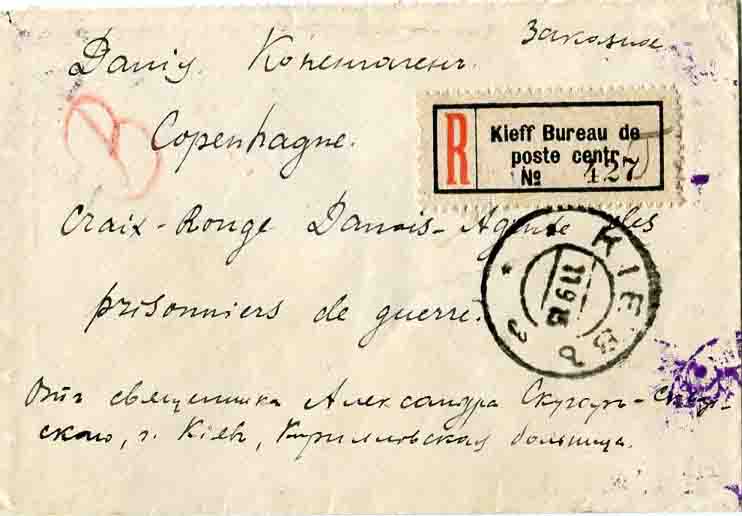 Заказное
Данiя. Копенгагенъ.
Copenhague.
R
Kieff Bureau de
poste centr.
№ 427
Craix-Rouge Danois-Agente des
prisonniers de guerre.
КІЕВЪ
11 9 15
3
Отъ священника Александра
скаго, г. Кіевъ, Кирилловская больница.